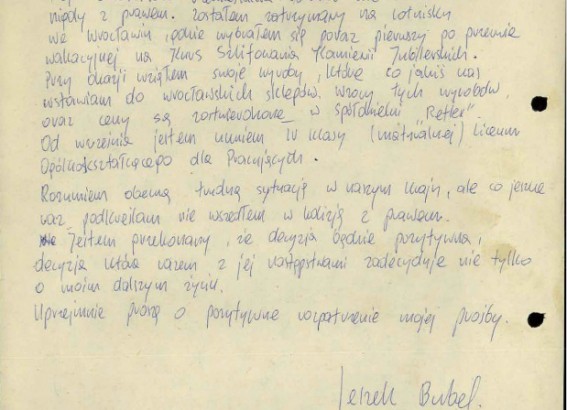 nigdy z prawem. Zostałem zatrzymany na lotnisku
we Wrocławiu, gdzie wybrałem się poraz pierwszy po przerwie
wakacyjnej na Kurs Szlifowania Kamieni Jubilerskich.
Przy okazji wziąłem swoje wyroby, które co jakiś czas
wstawiam do wrocławskich sklepów. Wzory tych wyrobów,
oraz ceny są zatwierdzone w spółdzielni "Retler"
Od września jestem uczniem IV klasy (maturalnej) Liceum
Ogólnokształcącego dla Pracujących.
Rozumiem obecną trudną sytuację w naszym kraju, ale co jeszcze
raz podkreślam nie wszedłem w kolizję z prawem.
Jestem przekonany, że decyzja będzie pozytywna,
decyzja która razem z jej następstwami zadecyduje nie tylko
o moim dalszym życiu.
Uprzejmie proszę o pozytywne rozpatrzenie mojej prośby.
Leszek Bubel.